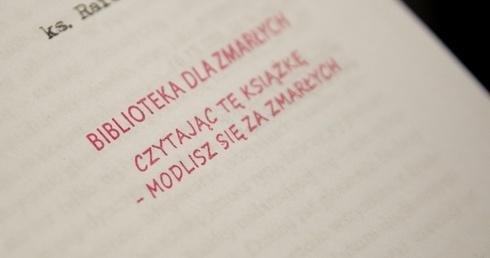 ks.
BIBLIOTEKA DLA ZMARŁYCH
CZYTAJĄC TĘ KSIĄŻKĘ
- MODLISZ SIĘ ZA ZMARŁYCH